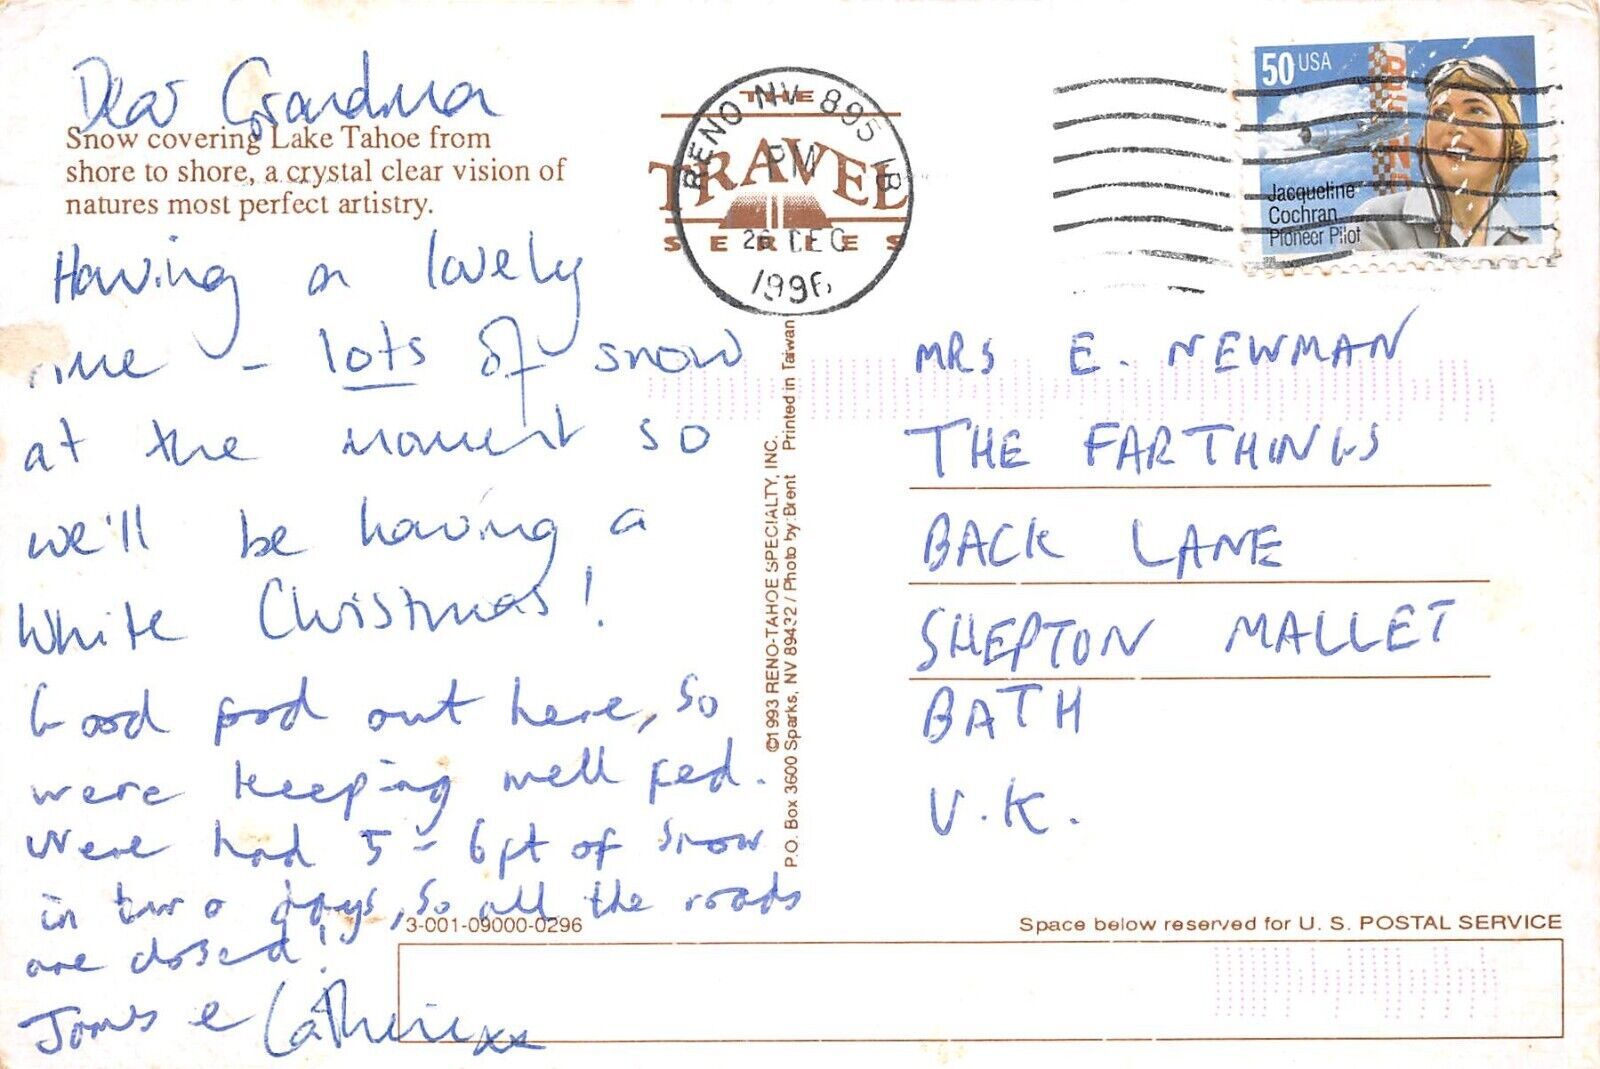 Dear Grandma
Snow covering Lake Tahoe from
shore to shore, a crystal clear vision of
natures most perfect artistry.
Having a lovely
time - lots of snow
at the moment so
we'll be having a
White Christmas!
Good food out here, so
were keeping well fed.
Weve had 5-6ft of snow
in two days, so all the roads
are closed!
James & Catherine xx
THE
TRAVEL
SERIES
RENO NV 895 18
PM
26 DEC
1996
50 USA
Jacqueline
Cochran
Pioneer Pilot
MRS E. NEWMAN
THE FARTHINGS
BACK LANE
SHEPTON MALLET
BATH
U.K.
©1993 RENO-TAHOE SPECIALTY, INC.
P.O. Box 3600 Sparks, NV 89432 / Photo by:Brent Printed in Taiwan
3-001-09000-0296
Space below reserved for U. S. POSTAL SERVICE